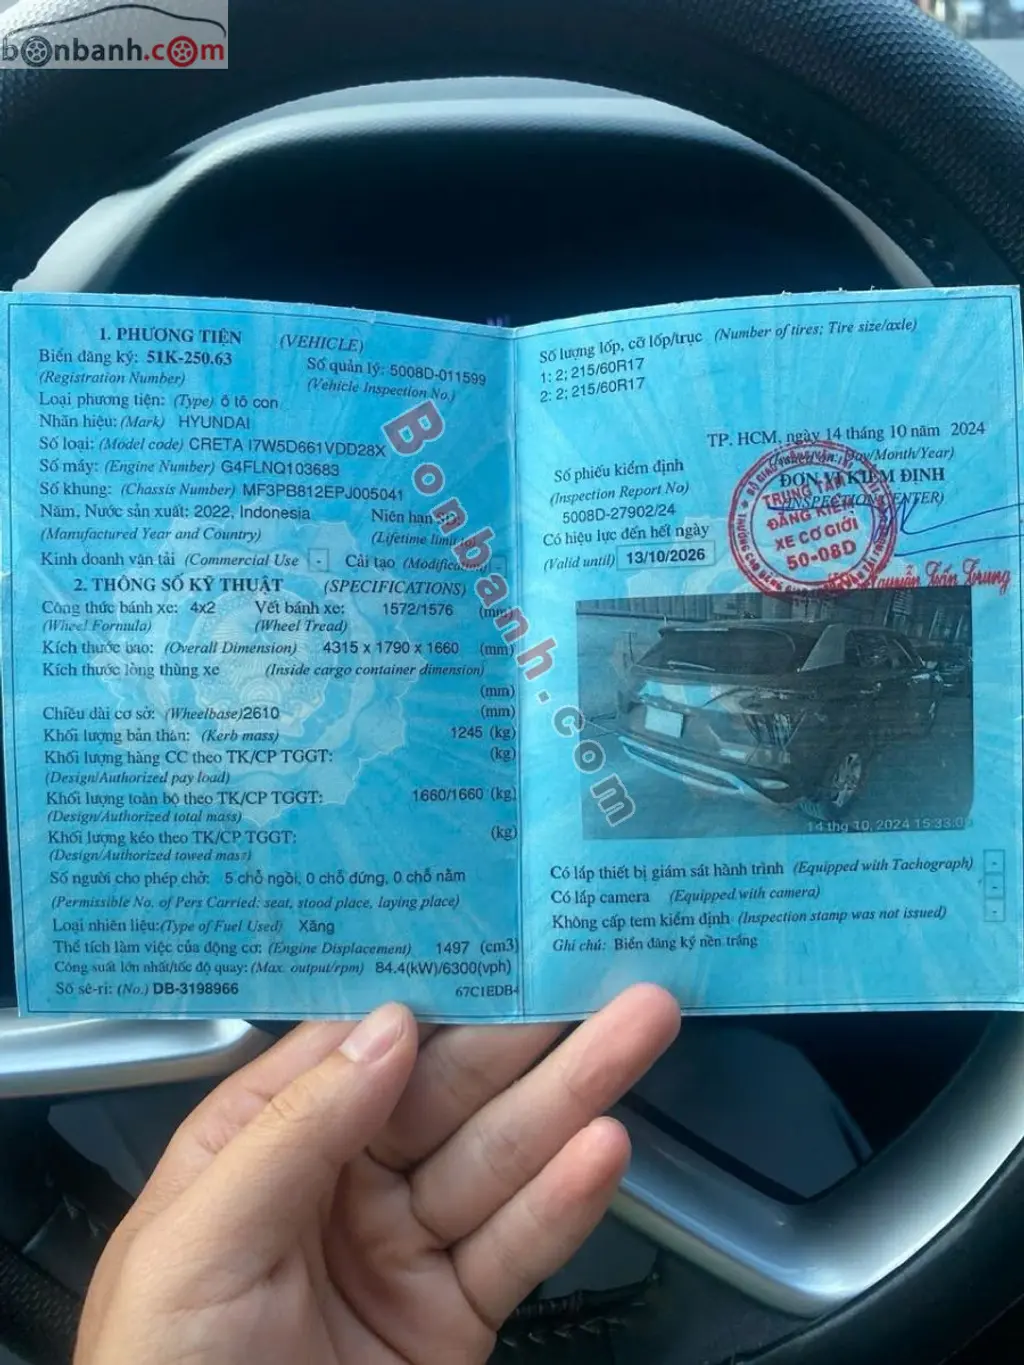 bonbanh.com
1. PHƯƠNG TIỆN (VEHICLE)
Biển đăng ký: 51K-250.63
(Registration Number)
Số quản lý: 5008D-011599
(Vehicle Inspection No.)
Loại phương tiện: (Type) ô tô con
Nhãn hiệu: (Mark) HYUNDAI
Số loại: (Model code) CRETA I7W5D661VDD28X
Số máy: (Engine Number) G4FLNQ103683
Số khung: (Chassis Number) MF3PB812EPJ005041
Năm, Nước sản xuất: 2022, Indonesia
(Manufactured Year and Country)
Niên hạn SD:
(Lifetime limit to)
Kinh doanh vận tải (Commercial Use) - Cải tạo (Modification) -
2. THÔNG SỐ KỸ THUẬT (SPECIFICATIONS)
Công thức bánh xe: 4x2 Vết bánh xe: 1572/1576 (mm)
(Wheel Formula) (Wheel Tread)
Kích thước bao: (Overall Dimension) 4315 x 1790 x 1660 (mm)
Kích thước lòng thùng xe (Inside cargo container dimension)
(mm)
Chiều dài cơ sở: (Wheelbase)2610 (mm)
Khối lượng bản thân: (Kerb mass) 1245 (kg)
Khối lượng hàng CC theo TK/CP TGGT: (kg)
(Design/Authorized pay load)
Khối lượng toàn bộ theo TK/CP TGGT: 1660/1660 (kg)
(Design/Authorized total mass)
Khối lượng kéo theo TK/CP TGGT: (kg)
(Design/Authorized towed mass)
Số người cho phép chở: 5 chỗ ngồi, 0 chỗ đứng, 0 chỗ nằm
(Permissible No. of Pers Carried: seat, stood place, laying place)
Loại nhiên liệu:(Type of Fuel Used) Xăng
Thể tích làm việc của động cơ: (Engine Displacement) 1497 (cm3)
Công suất lớn nhất/tốc độ quay: (Max. output/rpm) 84.4(kW)/6300(vph)
Số sê-ri: (No.) DB-3198966
67C1EDB4
Số lượng lốp, cỡ lốp/trục (Number of tires; Tire size/axle)
1: 2; 215/60R17
2: 2; 215/60R17
TP. HCM, ngày 14 tháng 10 năm 2024
(Issued on: Day/Month/Year)
Số phiếu kiểm định
(Inspection Report No)
5008D-27902/24
ĐƠN VỊ KIỂM ĐỊNH
(INSPECTION CENTER)
TRUNG TÂM
ĐĂNG KIỂM
XE CƠ GIỚI
50-08D
Có hiệu lực đến hết ngày
(Valid until) 13/10/2026
Nguyễn Tấn Trung
14 thg 10, 2024 15:33:0
Có lắp thiết bị giám sát hành trình (Equipped with Tachograph) -
Có lắp camera (Equipped with camera) -
Không cấp tem kiểm định (Inspection stamp was not issued) -
Ghi chú: Biển đăng ký nền trắng
Bonbanh.com